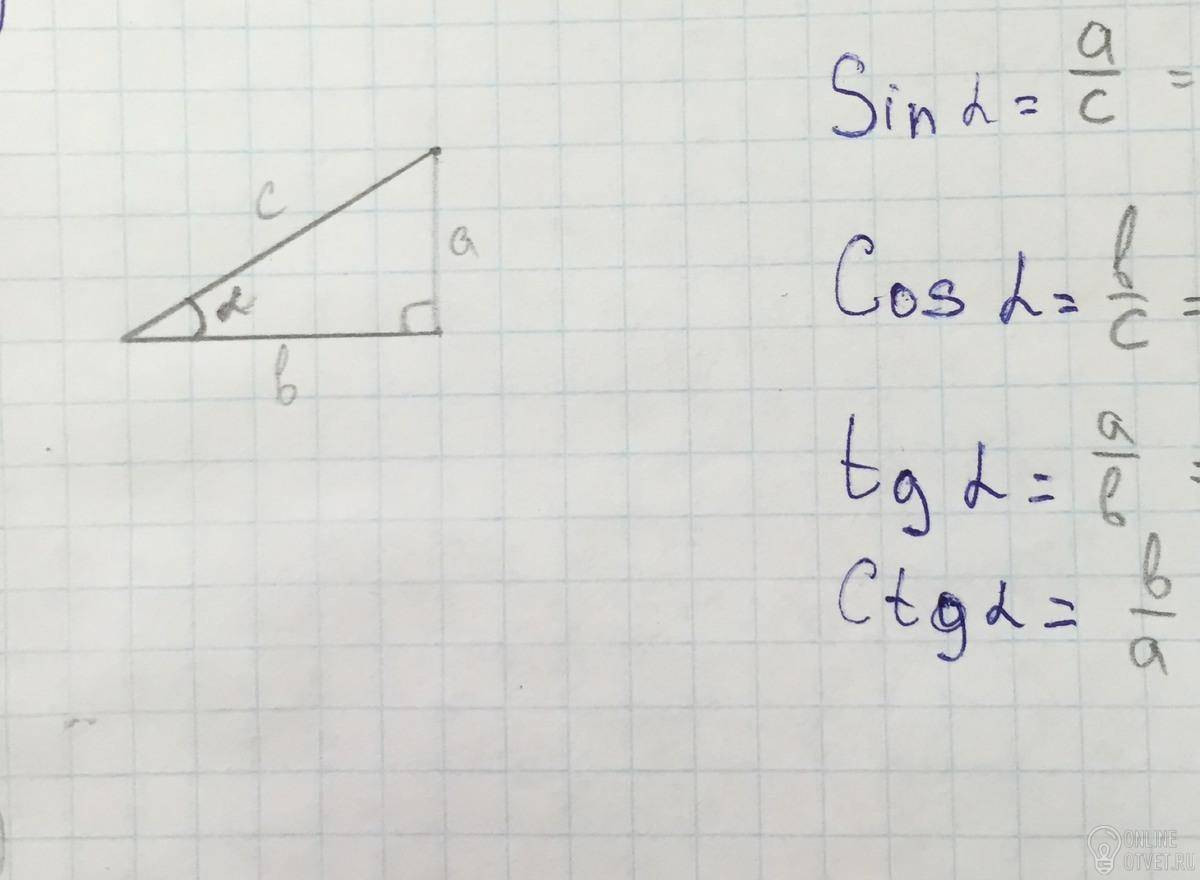 Sin α = a/c =
c
a
α
b
Cos α = b/c =
tg α = a/b =
Ctg α = b/a
ONLINE
OTVET.RU